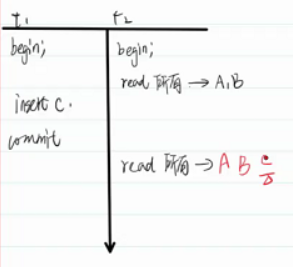 t₁ t₂
begin; begin;
read 所有 → A, B
insert C.
commit
read 所有 → A B C